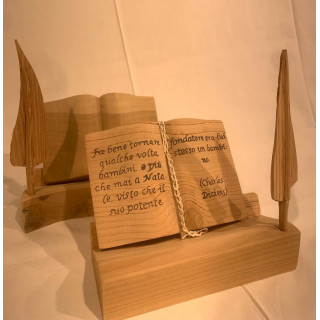 Fa bene tornare
qualche volta
bambini e più
che mai a Nata
le, visto che il
suo potente
fondatore era egli
stesso un bambi
no
(Charles
Dickens)